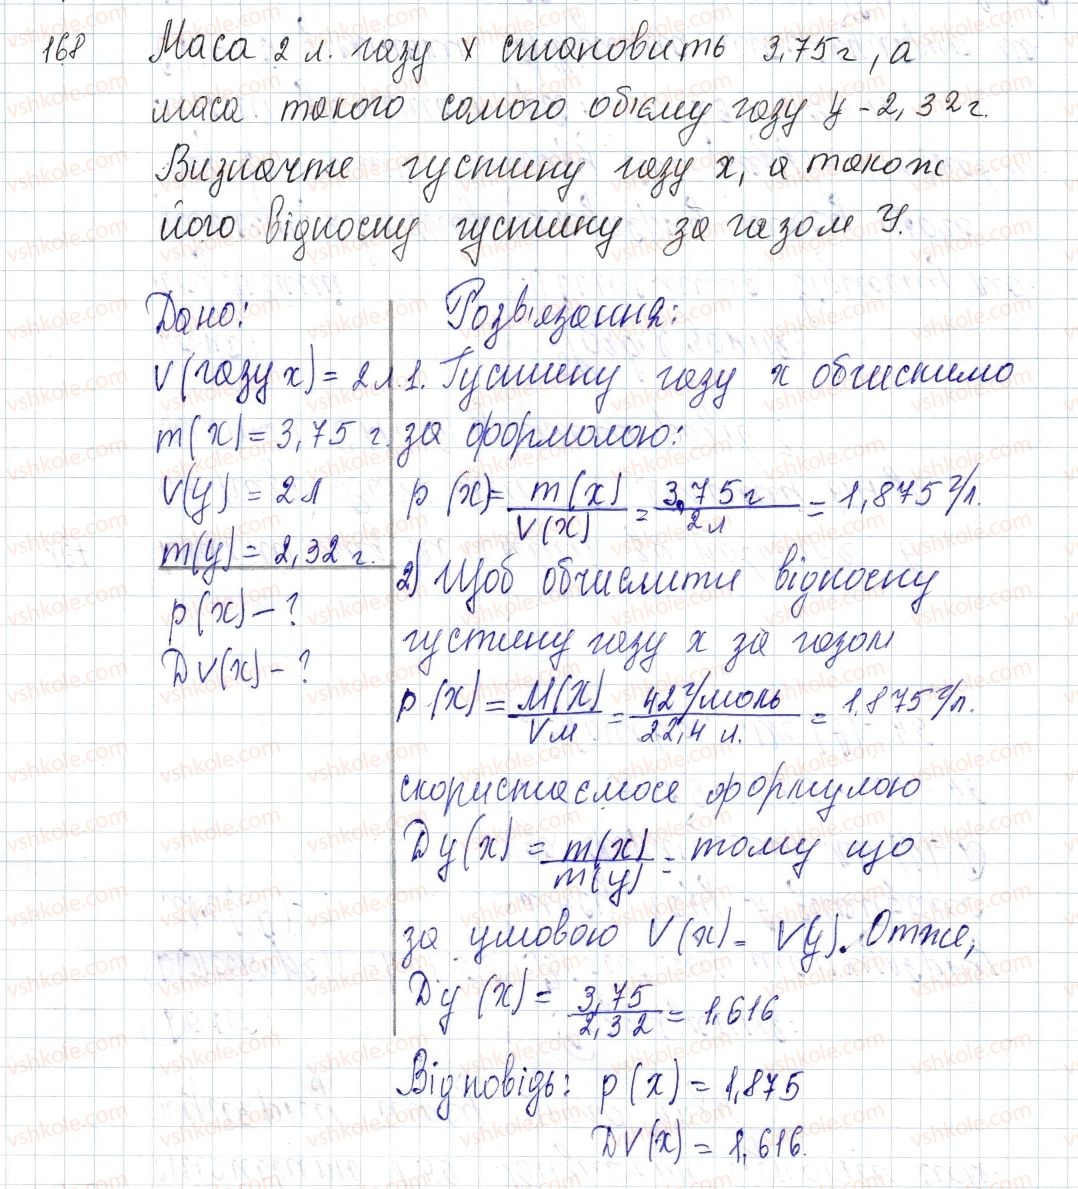 168 Маса 2 л. газу х становить 3,75 г, а
маса такого самого об'єму газу у – 2,32 г.
Визначте густину газу х, а також
його відносну густину за газом У.
Дано:
V(газу х) = 2 л
m(х) = 3,75 г.
V(у) = 2 л
m(у) = 2,32 г.
р(х) – ?
DV(х) – ?
Розв'язання:
1. Густину газу х обчислимо
за формолою:
р (х) = m(х) / V(х) = 3,75 г / 2 л = 1,875 г/л.
2) Щоб обчислити відносну
густину газу х за газом
р (х) = М(Х) / Vм = 42 г/моль / 22,4 л. = 1,875 г/л.
скористаємося формулою
Dy(х) = m(х) / m(у) - тому що
за умовою V(х) = V(у). Отже,
Dy (х) = 3,75 / 2,32 = 1,616
Відповідь: р (х) = 1,875
DV(х) = 1,616.
vshkole.com